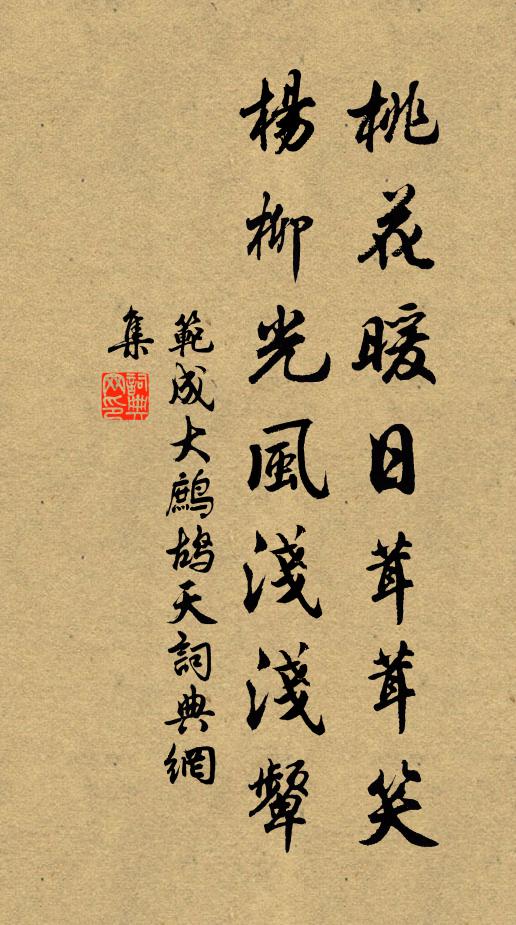 桃花暖日茸茸笑
楊柳光風淺淺顰
範成大鷓鴣天詞典網
集
詞典網印